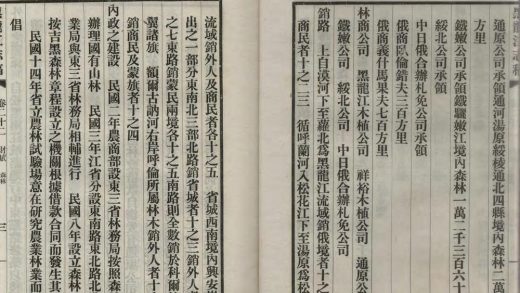 通原公司承領通河湯原綏棱通北四縣境內森林二萬
方里
綏北公司承領鐵驪嫩江境內森林一萬二千三百六十
鐵嫩公司承領
中日俄合辦札免公司承領
俄商臥倫錯夫三百方里
俄商義什馬果夫七百方里
林商公司 黑龍江木植公司 祥裕木植公司 通原公
鐵嫩公司 綏北公司 中日俄合辦札免公司
銷路 上自漠河下至蘿北爲黑龍江流域銷俄境者十之
商民者十之二三 循呼蘭河入松花江下至湯原爲松
流域銷外人及商民者各十之五 省城西南境內興安
出之一部分東南北三部北路銷省城者十之三
之七東路銷蒙民兩境各十之五南路則全數銷於科爾
翼諸旗 額爾古訥河右岸呼倫所屬林木銷外人者十
銷商民及蒙旗者十之四
內政之建設 民國二年農商部設東三省林務局按照森
辦理國有山林 民國三年江省分設東南路東北路北
業局與東三省林務局相輔進行 民國八年設立森林
按吉黑森林章程設立之機關根據借款合同而發生其
倡
民國十四年省立農林試驗場意在研究農業林業而